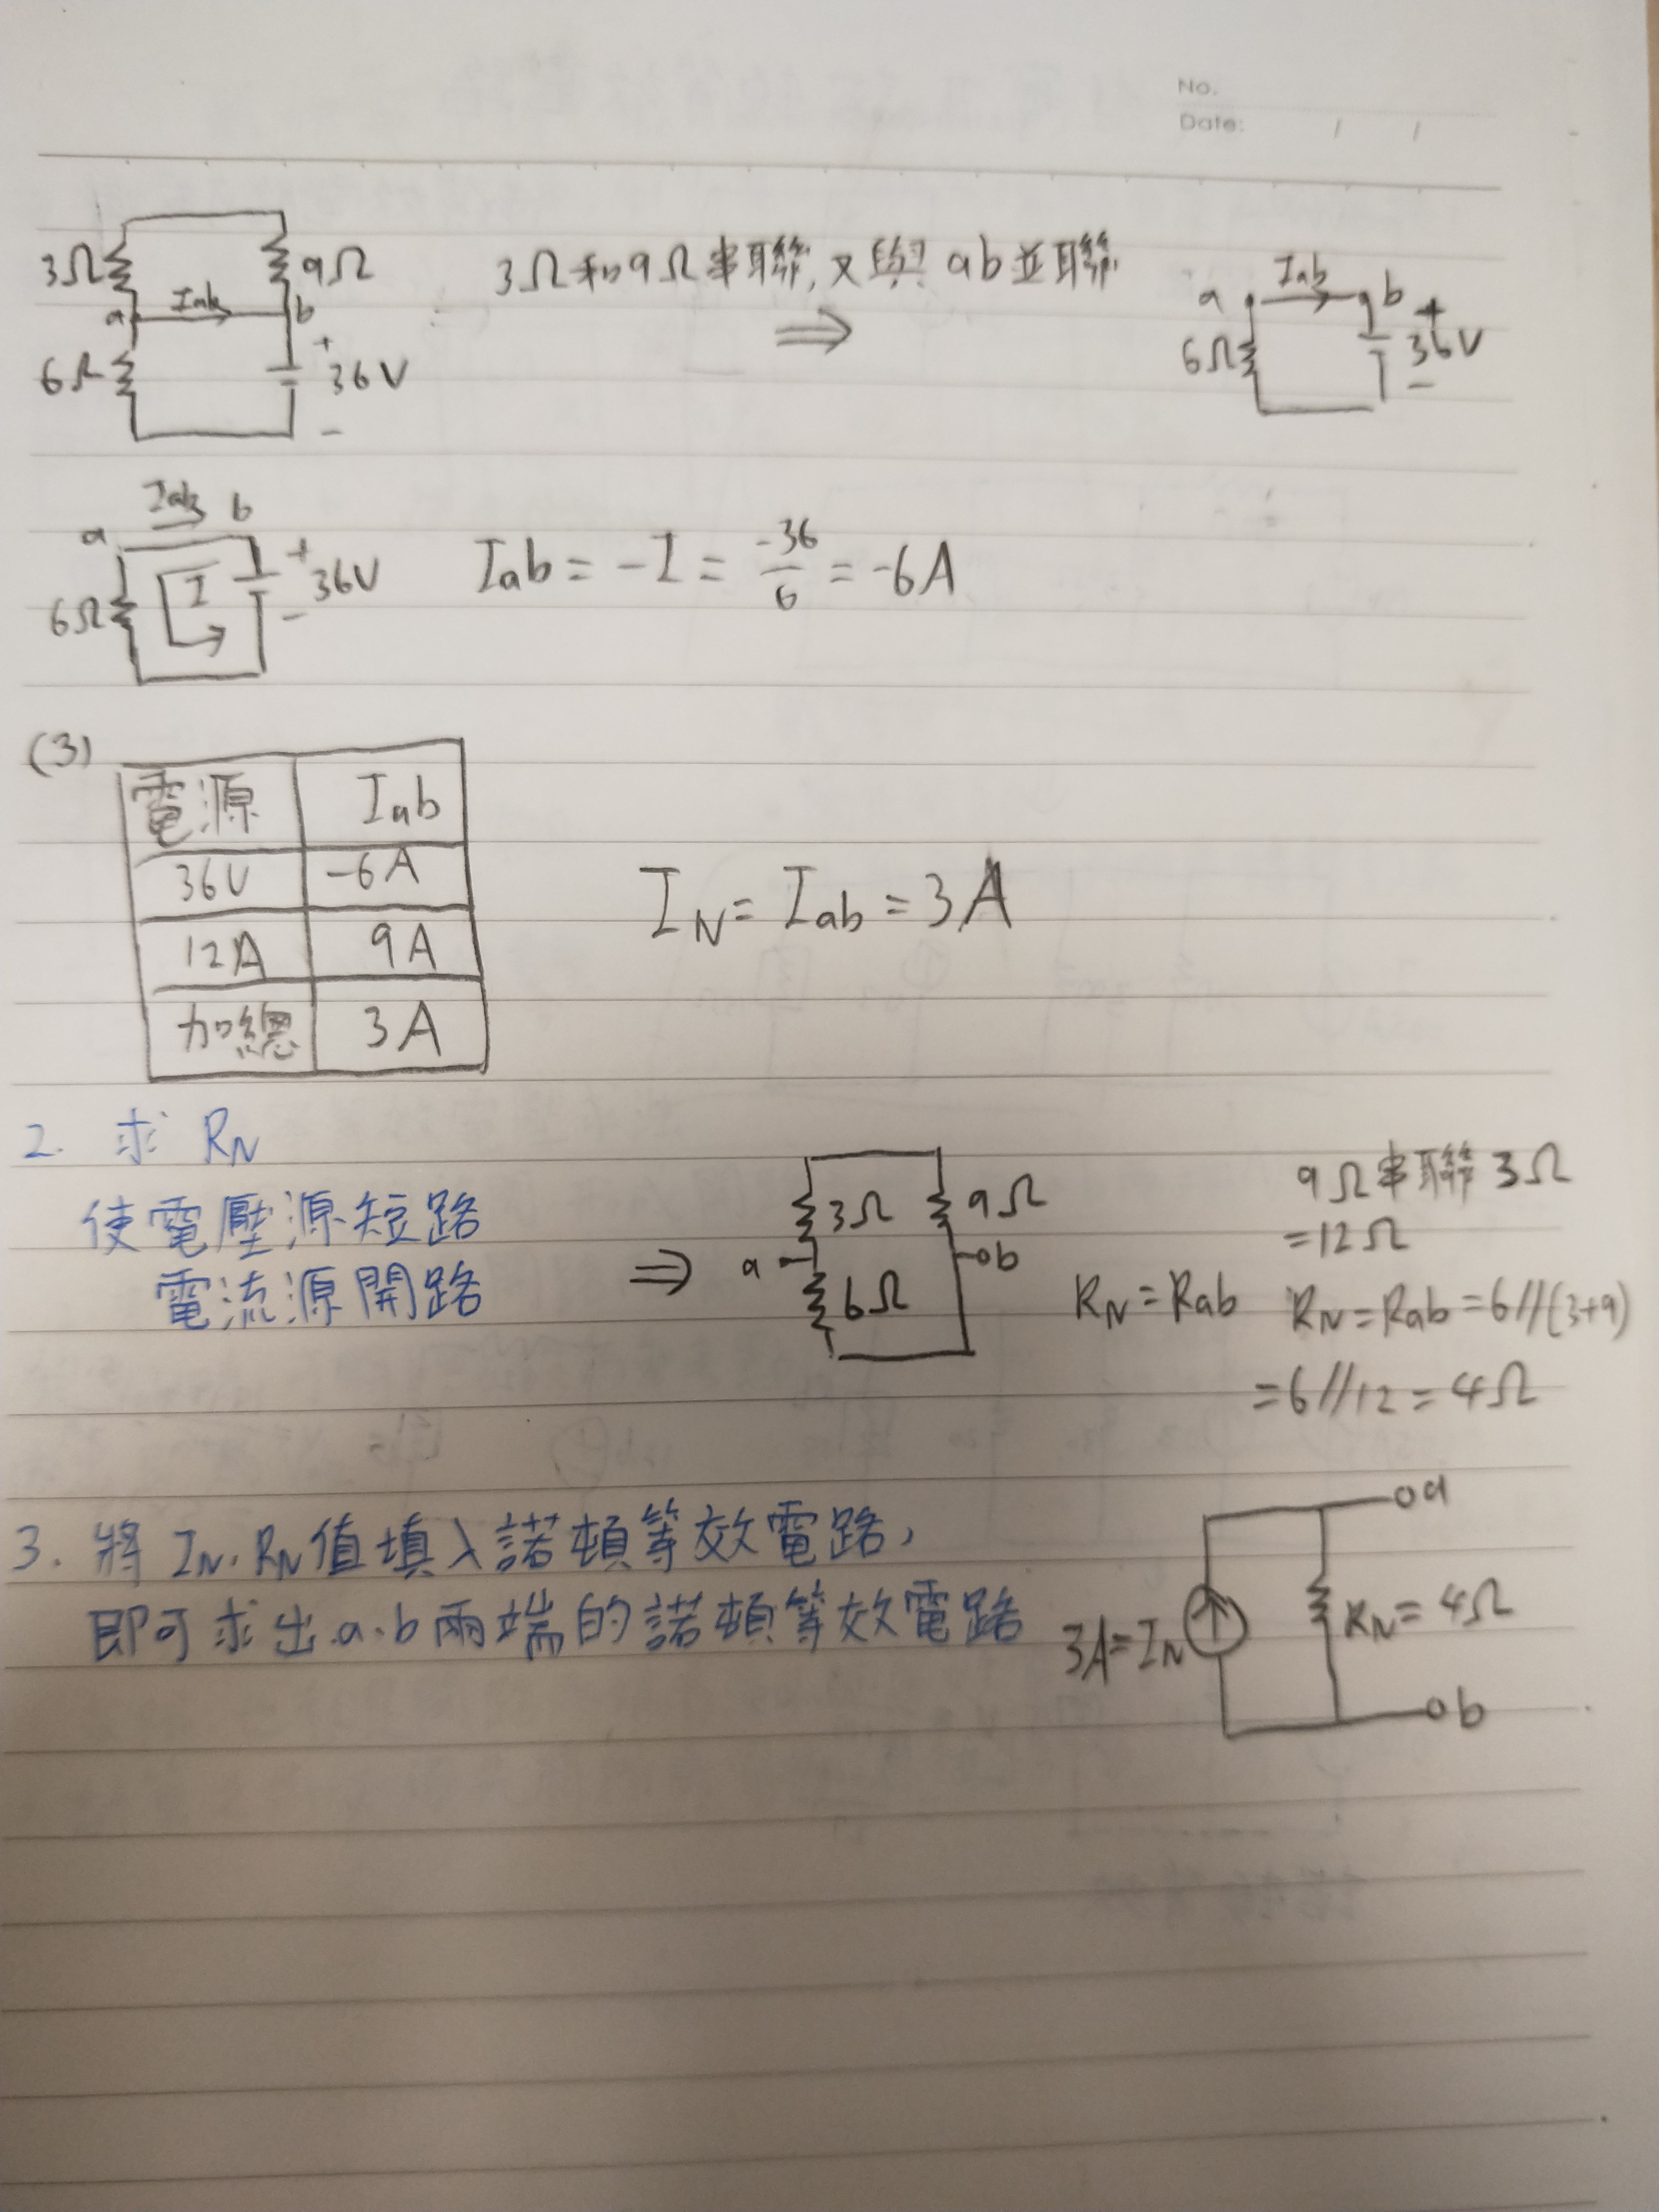 No.
Date: / /
3Ω 9Ω
a Iab b
6Ω + 36V -
3Ω和9Ω串聯,又與ab並聯
⇒
a Iab b
6Ω + 36V -
a Iab b
6Ω I + 36V -
Iab = -I = -36/6 = -6A
(3)
電源 Iab
36V -6A
12A 9A
加總 3A
IN = Iab = 3A
2. 求 RN
使電壓源短路
電流源開路
⇒
3Ω 9Ω
a b
6Ω
RN = Rab
9Ω串聯3Ω
=12Ω
RN=Rab=6//(3+9)
=6//12=4Ω
3. 將 IN.RN值填入諾頓等效電路,
即可求出.a.b兩端的諾頓等效電路
a
3A=IN RN=4Ω
b